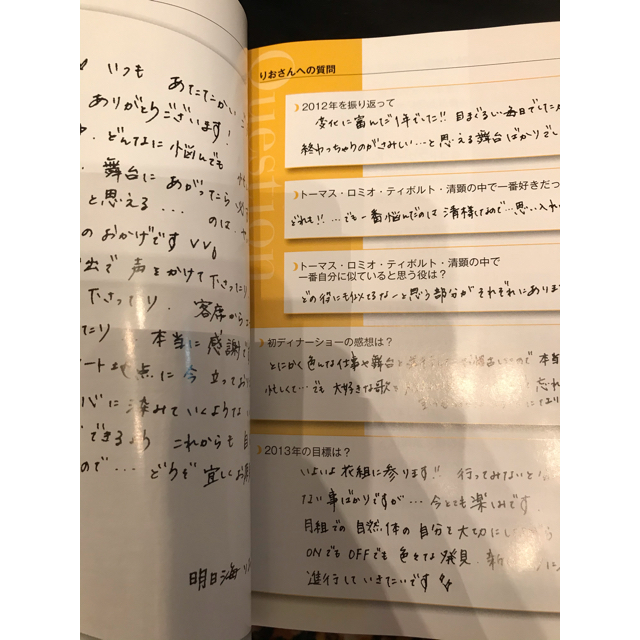 いつも あたたかい
ありがとうございます!
どんなに悩んでも
舞台にあがったら
と思える… のは、
のおかげです
出で 声をかけて下さったり
下さったり、客席から
たり 本当に感謝で
ート地点に今 立ってお
バに染みていくような
できるよう これからも
ので… どうぞ 宜しくお願
明日海
Question
りおさんへの質問
2012年を振り返って
変化に富んだ1年でした!! 目まぐるしい毎日でしたが
終わっちゃうのがさみしい…と思える舞台ばかりでし
トーマス・ロミオ・ティボルト・清顕の中で一番好きだっ
どれも!!…でも一番悩んだのは清様なので…思い入れ
トーマス・ロミオ・ティボルト・清顕の中で
一番自分に似ていると思う役は?
どの役にも似てるなーと思う部分がそれぞれにありま
初ディナーショーの感想は?
とにかく色んな仕事や舞台と ので 本当
忙しくて…でも 大好きな歌 忘れ
2013年の目標は?
いよいよ花組に参ります!! 行ってみないと
ない事ばかりですが… 今とても楽しみです
月組での自然体の自分を大切にし
ONでもOFFでも色々な発見、新
進行していきたいです